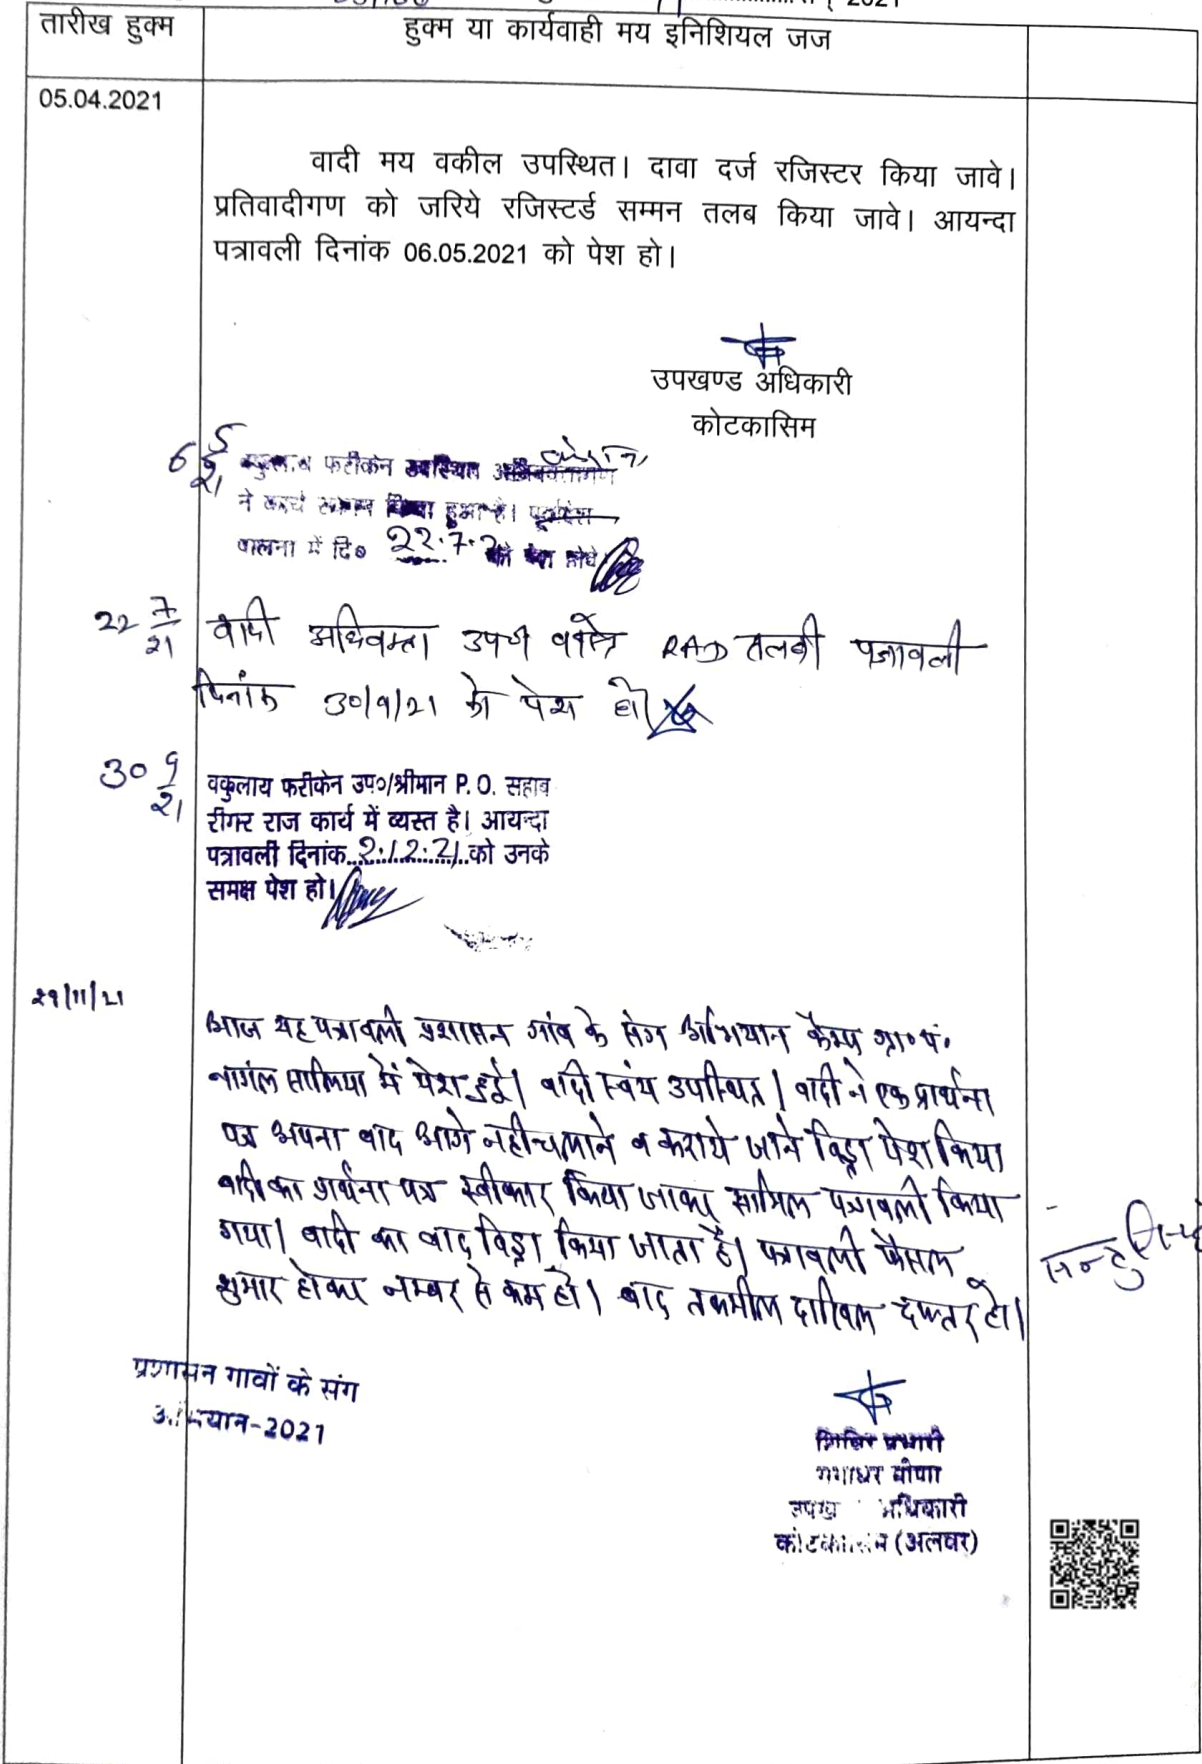 2021
तारीख हुक्म
हुक्म या कार्यवाही मय इनिशियल जज
05.04.2021
वादी मय वकील उपस्थित। दावा दर्ज रजिस्टर किया जावे।
प्रतिवादीगण को जरिये रजिस्टर्ड सम्मन तलब किया जावे। आयन्दा
पत्रावली दिनांक 06.05.2021 को पेश हो।
उपखण्ड अधिकारी
कोटकासिम
6 5/21
फरीकेन उपस्थित
ने कार्य हुआ है।
पालना में दि० 22.7.2
22 7/21 वादी अधिवक्ता उप० वास्ते RAD तलबी पत्रावली
दिनांक 30/9/21 को पेश हो।
30 9/21
वकुलाय फरीकेन उप०/श्रीमान P.O. सहाब
दीगर राज कार्य में व्यस्त है। आयन्दा
पत्रावली दिनांक 2.12.21 को उनके
समक्ष पेश हो।
29/11/21
आज यह पत्रावली प्रशासन गांव के संग अभियान केम्प ग्रा०पं०
नांगल सालिया में पेश हुई। वादी स्वंय उपस्थित। वादी ने एक प्रार्थना
पत्र अपना वाद आगे नहीं चलाने व कराये जाने विड्रा पेश किया
वादी का प्रार्थना पत्र स्वीकार किया जाकर सामिल पत्रावली किया
गया। वादी का वाद विड्रा किया जाता है। पत्रावली फैसल
शुमार होकर नम्बर से कम हो। बाद तकमील दाखिल दफ्तर हो।
प्रशासन गावों के संग
अभियान-2021
शिविर प्रभारी
गंगाधर मीणा
उपखण्ड अधिकारी
कोटकासिम (अलवर)